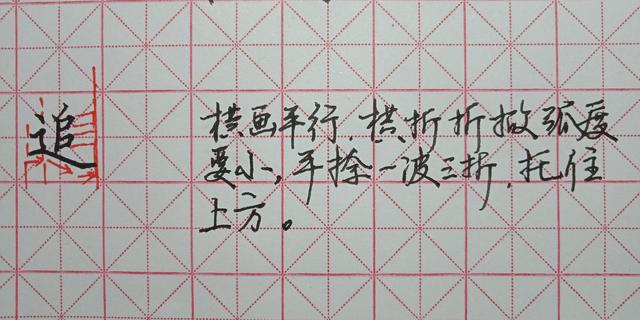 追
横画平行,横折折撇弧度
要小,平捺一波三折,托住
上方。